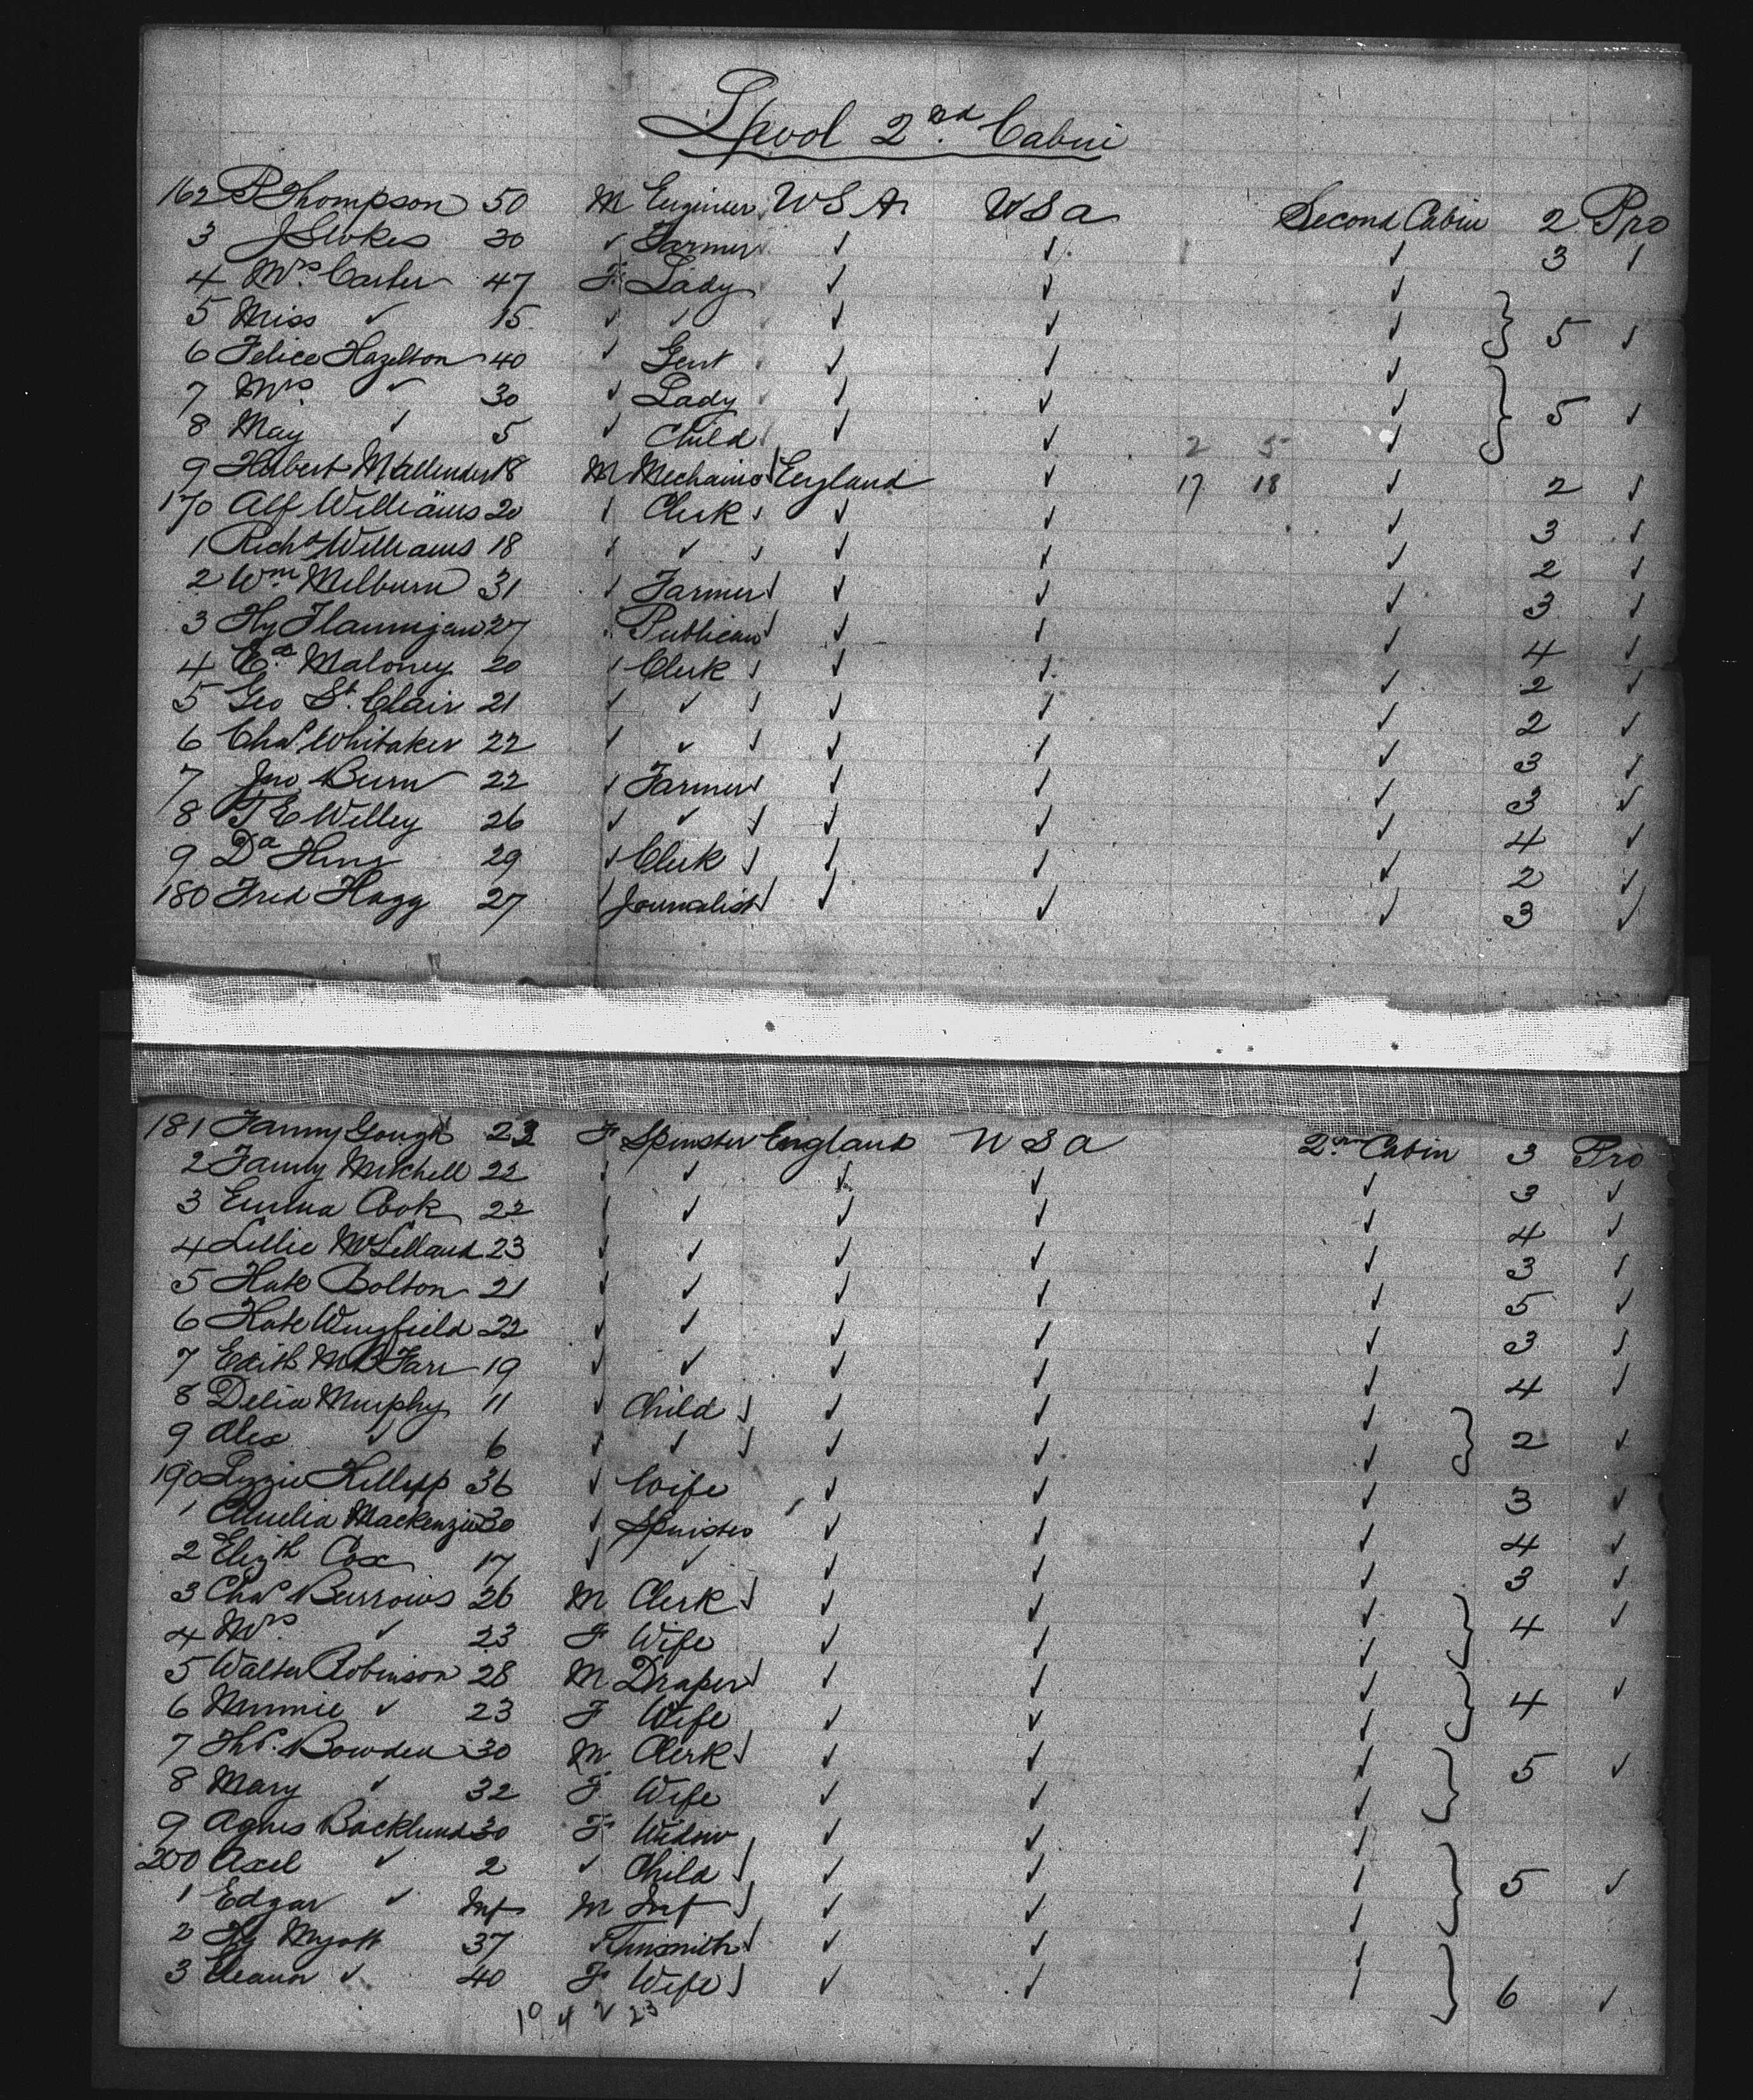 Lpool 2nd Cabin
162 P Thompson 50 M Engineer U S A U S A Second Cabin 2 Pro
3 J Stokes 30 ✓ Farmer ✓ ✓ ✓ 3 ✓
4 Mrs Carter 47 F Lady ✓ ✓ ✓
5 Miss ✓ 15 ✓ ✓ ✓ ✓ ✓ 5 ✓
6 Felice Hazelton 40 ✓ Gent ✓ ✓ ✓
7 Mrs ✓ 30 ✓ Lady ✓ ✓ ✓ 5 ✓
8 May ✓ 5 ✓ Child ✓ ✓ 2 5 ✓
9 Herbert 18 M Mechanic England ✓ 17 18 ✓ 2 ✓
170 Alf Williams 20 ✓ Clerk ✓ ✓ ✓ 3 ✓
1 Richd Williams 18 ✓ ✓ ✓ ✓ ✓ 2 ✓
2 Wm Melburn 31 ✓ Farmer ✓ ✓ ✓ 3 ✓
3 Hy Flannigan 27 Publican ✓ ✓ ✓ 4 ✓
4 Ed Maloney 20 ✓ Clerk ✓ ✓ ✓ 2 ✓
5 Geo St Clair 21 ✓ ✓ ✓ ✓ ✓ 2 ✓
6 Chas Whitaker 22 ✓ ✓ ✓ ✓ ✓ 3 ✓
7 Jno Burn 22 ✓ Farmer ✓ ✓ ✓ 3 ✓
8 T E Willey 26 ✓ ✓ ✓ ✓ ✓ 4 ✓
9 29 ✓ Clerk ✓ ✓ ✓ 2 ✓
180 Fred Hagg 27 ✓ Journalist ✓ ✓ ✓ 3 ✓
181 Fanny Gough 23 F Spinster England U S A 2nd Cabin 3 Pro
2 Fanny Mitchell 22 ✓ ✓ ✓ ✓ ✓ 3 ✓
3 Emma Cook 22 ✓ ✓ ✓ ✓ ✓ 4 ✓
4 Lillie McLelland 23 ✓ ✓ ✓ ✓ ✓ 3 ✓
5 Kate Bolton 21 ✓ ✓ ✓ ✓ ✓ 5 ✓
6 Kate Wingfield 22 ✓ ✓ ✓ ✓ ✓ 3 ✓
7 Edith Farr 19 ✓ ✓ ✓ ✓ ✓ 4 ✓
8 Delia Murphy 11 ✓ Child ✓ ✓ ✓
9 Alex ✓ 6 ✓ ✓ ✓ ✓ ✓ 2 ✓
190 Lizzie 36 ✓ Wife ✓ ✓ ✓ 3 ✓
1 Amelia Mackenzie 30 ✓ Spinster ✓ ✓ ✓ 4 ✓
2 Elizth Cox 17 ✓ ✓ ✓ ✓ ✓ 3 ✓
3 Chas Burrows 26 M Clerk ✓ ✓ ✓
4 Mrs ✓ 23 F Wife ✓ ✓ ✓ 4 ✓
5 Walter Robinson 28 M Draper ✓ ✓ ✓
6 Minnie ✓ 23 F Wife ✓ ✓ ✓ 4 ✓
7 Ths. Bowden 30 M Clerk ✓ ✓ ✓
8 Mary ✓ 32 F Wife ✓ ✓ ✓ 5 ✓
9 Agnes Backlund 30 F Widow ✓ ✓ ✓
200 Axel ✓ 2 ✓ Child ✓ ✓ ✓ 5 ✓
1 Edgar ✓ Inf M Inf ✓ ✓ ✓
2 Hy Myott 37 Tinsmith ✓ ✓ ✓
3 Eleanor ✓ 40 F Wife ✓ ✓ ✓ 6 ✓
19 4 2 23